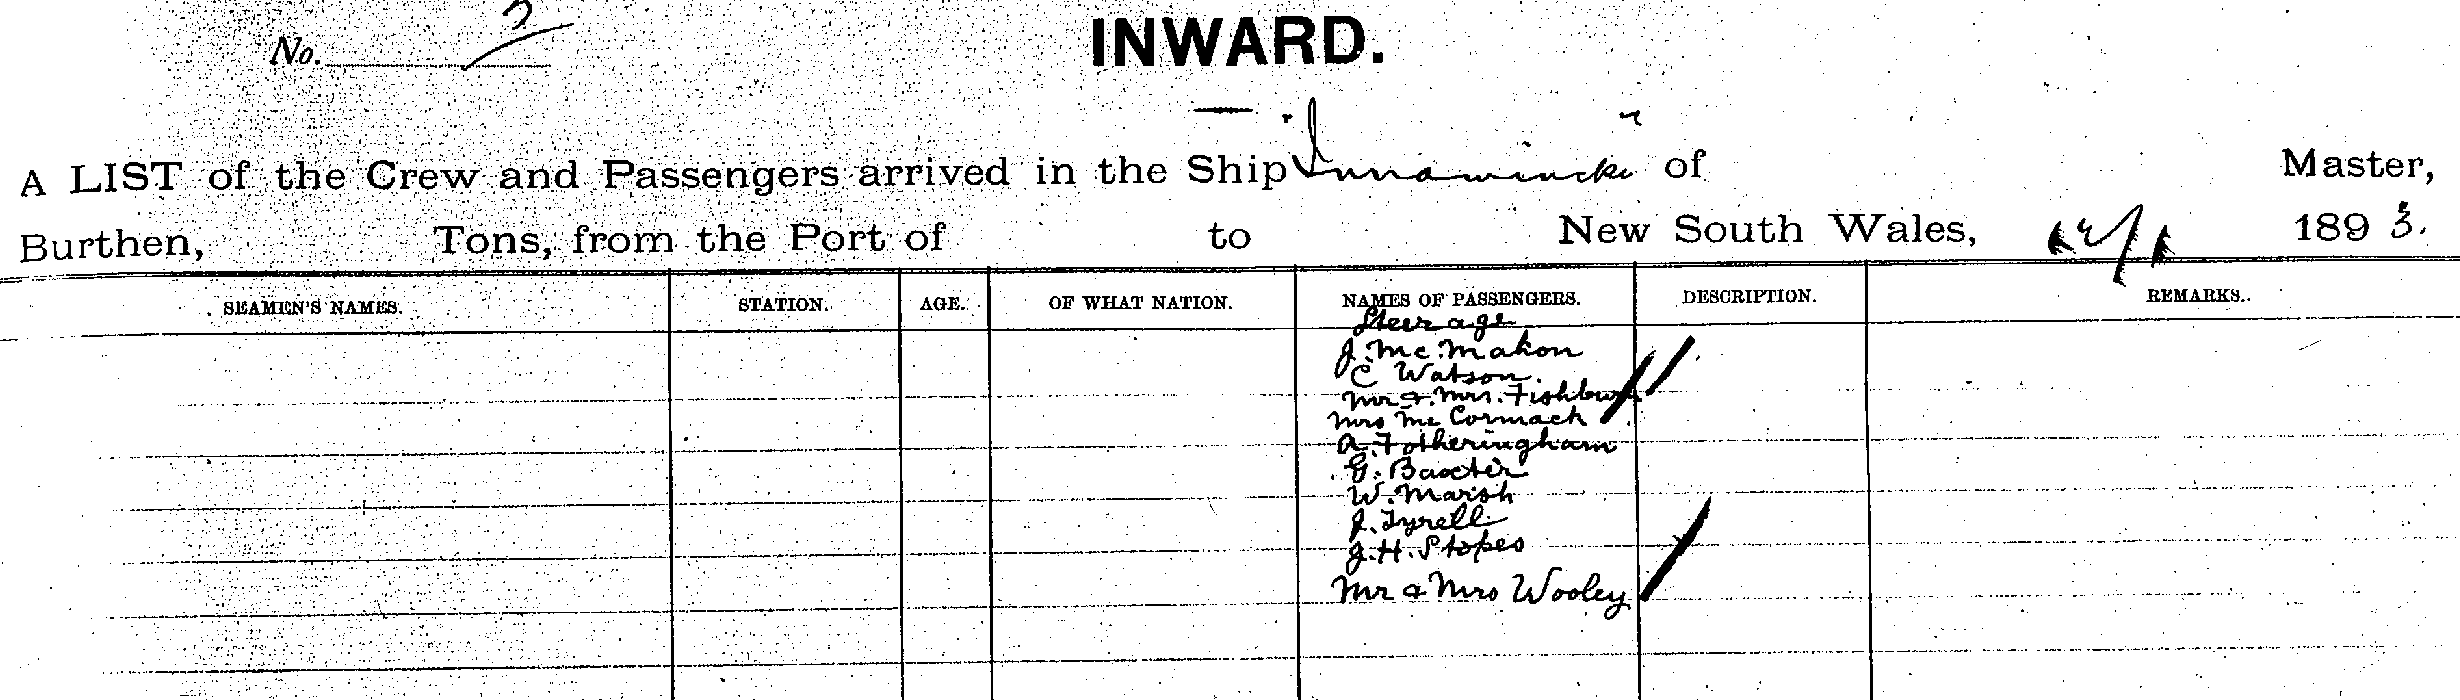 No. 2
INWARD.
A LIST of the Crew and Passengers arrived in the Ship Innamincka of Master,
Burthen, Tons, from the Port of to New South Wales, 189 3.
SEAMEN'S NAMES. STATION. AGE. OF WHAT NATION. NAMES OF PASSENGERS. DESCRIPTION. REMARKS.
Steerage
J. McMahon
C Watson
Mr & Mrs. Fishburn
Mrs McCormack
A. Fotheringham
G. Baxter
W. Marsh
J. Tyrell
J. H. Stopes
Mr & Mrs Wooley